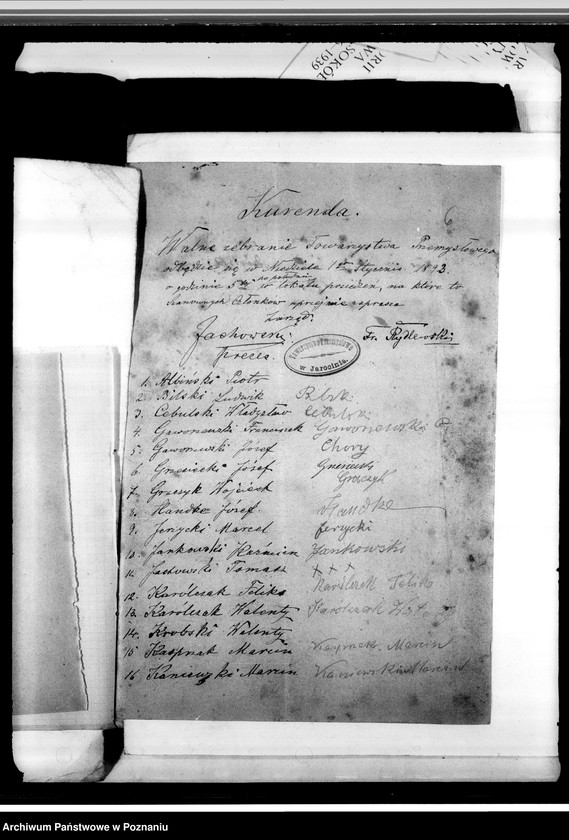 SOKÓŁ
-1939
Kurenda.
6
Walne zebranie Towarzystwa Przemysłowego
odbędzie się w Niedzielę 1go Stycznia 1893.
o godzinie 5tej po południu w lokalu posiedzeń, na które to
Szanownych Członków uprzejmie zaprasza
Zarząd:
Jachowski Fr. Rydlewski
prezes.
w Jarocinie.
1. Albiński Piotr
2. Bilski Ludwik
3. Cebulski Władysław
4. Gawroniewski Franciszek
5. Józef Chory
6. Gnerecki Józef
7. Grzeszyk Wojciech
8. Handke Józef Handke
9. Jerzycki Marcel Jerzycki
10. Jankowski Kaźmierz Jankowski
11. Jachowski Tomasz + + +
12. Karólczak Feliks Karólczak Feliks
13. Karólczak Walenty Karólczak
14. Krobski Walenty
15 Kaspzak Marcin Marcin
16. Kaniewski Marcin Kaniewski Marcin
Archiwum Państwowe w Poznaniu